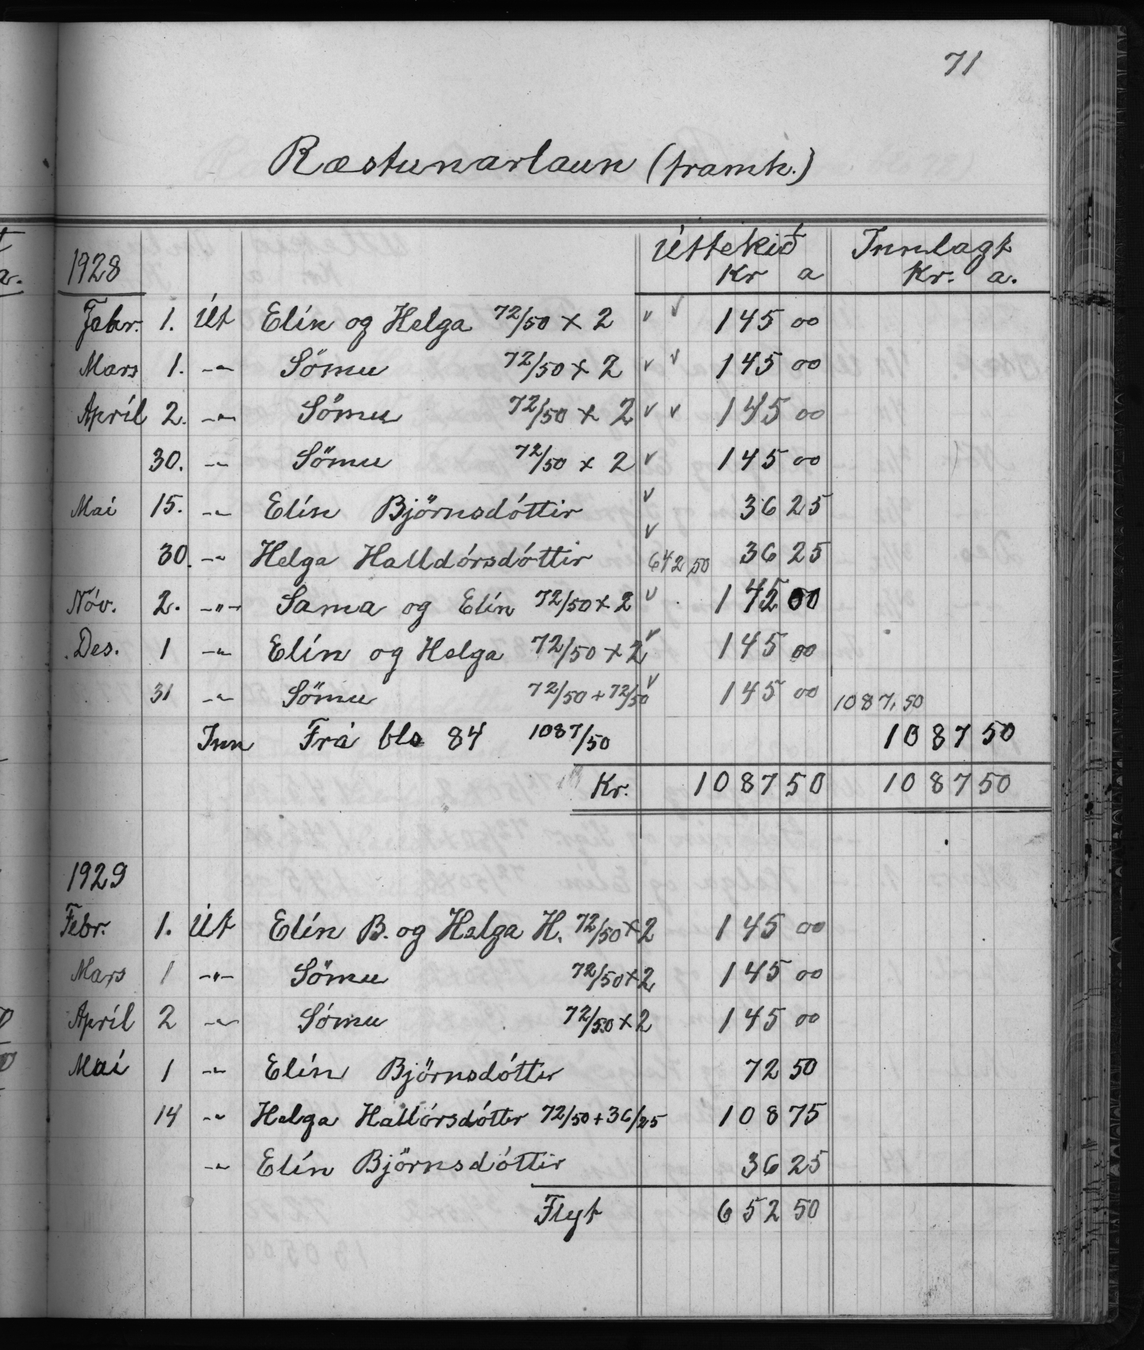 71
Ræstunarlaun (framh.)
Úttekið Innlagt
1928 Kr a Kr. a.
Febr. 1. Út Elín og Helga 72/50 × 2 145 00
Mars 1. -"- Sömu 72/50 × 2 145 00
Apríl 2. -"- Sömu 72/50 × 2 145 00
30. -"- Sömu 72/50 × 2 145 00
Maí 15. -"- Elín Björnsdóttir 36 25
30. -"- Helga Halldórsdóttir 642 50 36 25
Nóv. 2. -"- Sama og Elín 72/50 × 2 145 00
Des. 1 -"- Elín og Helga 72/50 × 2 145 00
31 -"- Sömu 72/50 + 72/50 145 00 1087,50
Inn Frá bls 84 1087/50 1087 50
Kr. 1087 50 1087 50
1929
Febr. 1. Út Elín B. og Helga H. 72/50 × 2 145 00
Mars 1 -"- Sömu 72/50 × 2 145 00
Apríl 2 -"- Sömu 72/50 × 2 145 00
Maí 1 -"- Elín Björnsdóttir 72 50
14 -"- Helga Hallórsdóttir 72/50 + 36/25 108 75
-"- Elín Björnsdóttir 36 25
Flyt 652 50